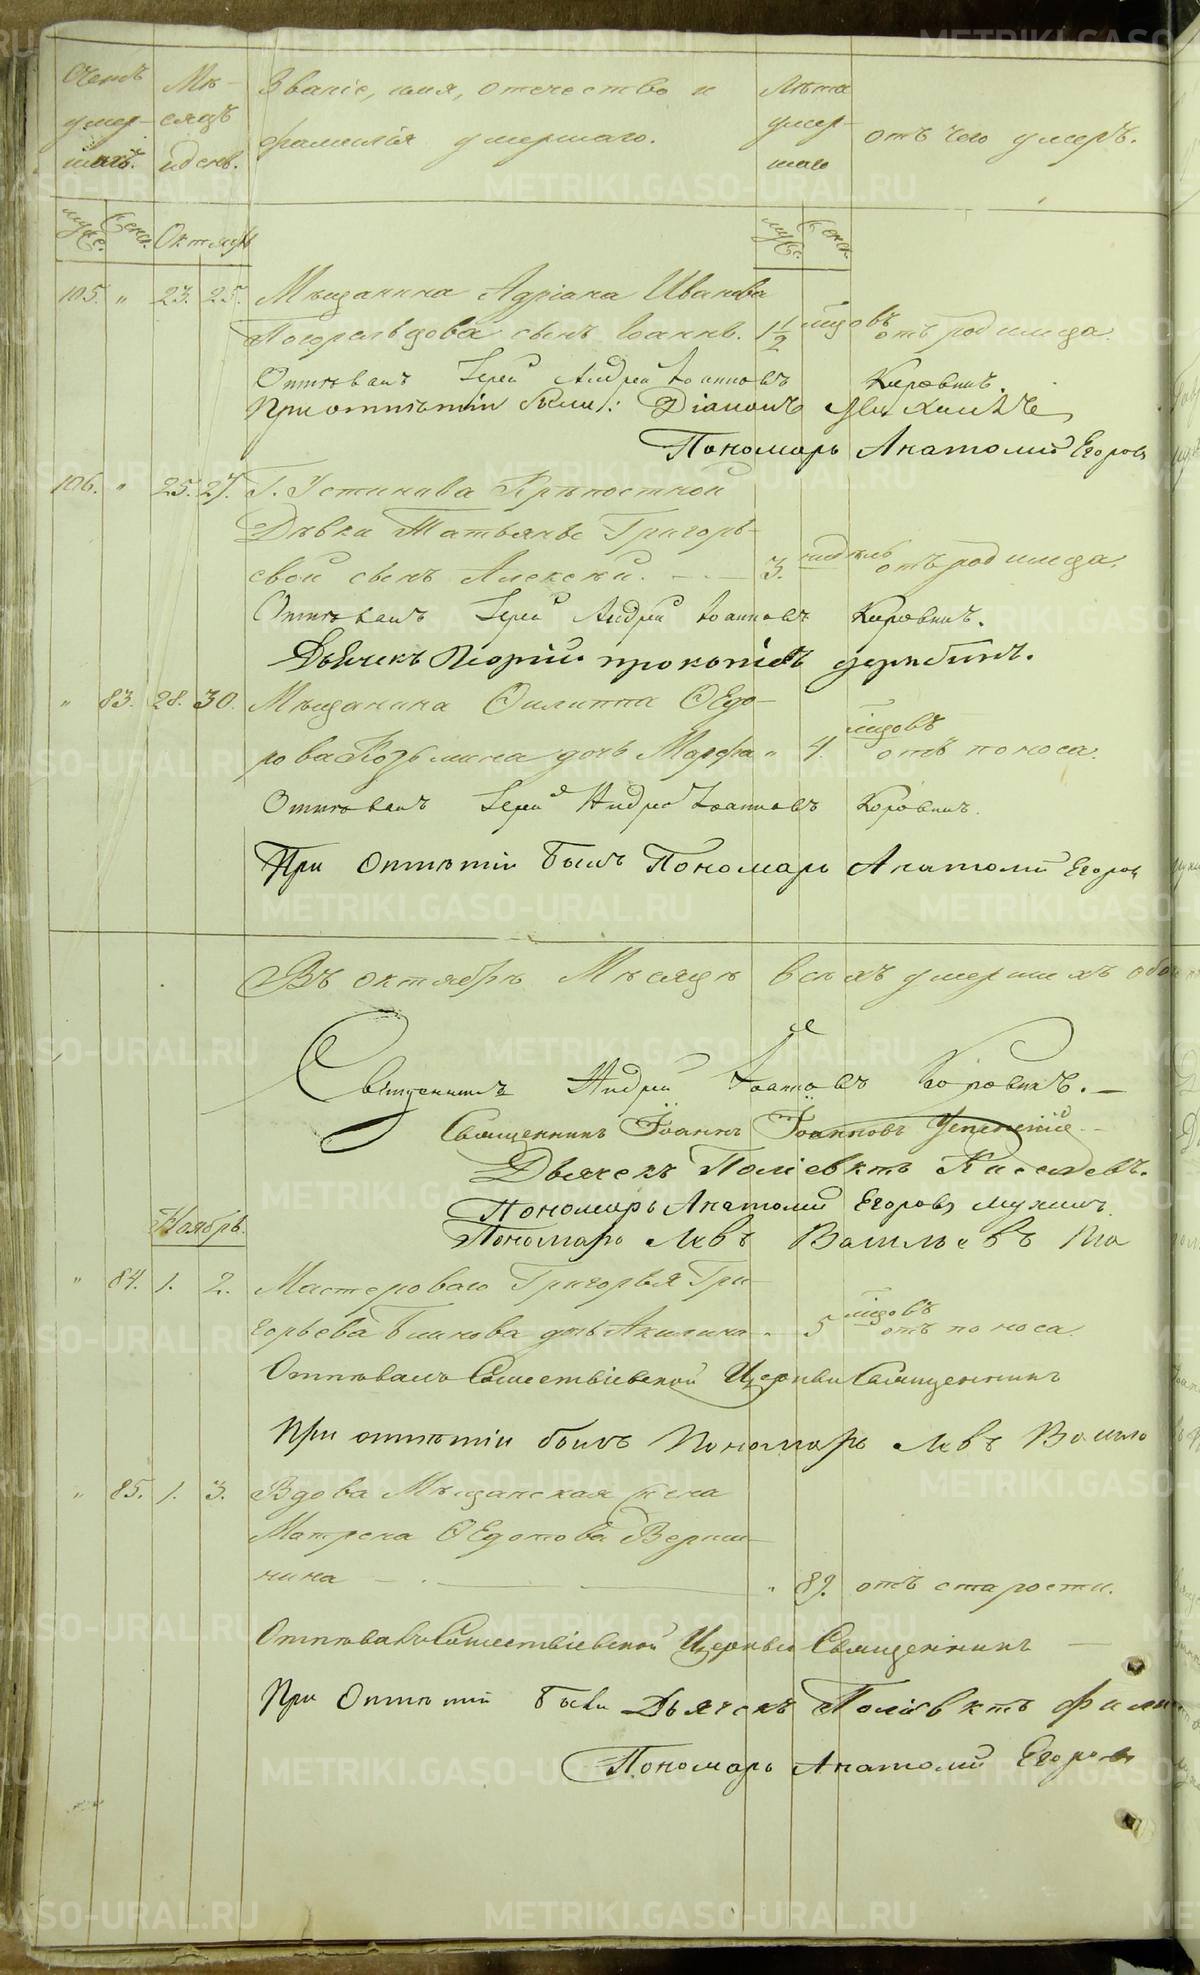 Счетъ умер- шихъ.
Мѣ- сяцъ и день.
Званіе, имя, отечество и фамилія умершаго.
Лѣта умер- шаго
отъ чего умеръ.
муж. женс. Октябрь муж. женс.
105. " 23. 25. Мѣщанина Адріана Иванова
сынъ Іоаннъ. 1½ мѣсяцовъ отъ родимца.
Отпѣвалъ Іерей Андрей Іоанновъ Коровинъ.
При отпѣтіи были: Діаконъ
Пономарь Анатолий Егоровъ
106. " 25. 27. Г. Устинова Крѣпостной
Дѣвки Татьяны Григорь-
евой сынъ Алексѣй. 3. недѣль отъ родимца.
Отпѣвалъ Іерей Андрей Іоанновъ Коровинъ.
Дьячекъ Георгій прокопіевъ дерябинъ.
" 83. 28. 30. Мѣщанина Филиппа Ѳедо-
рова Козьмина дочь Марфа " 4. мѣсяцовъ отъ поноса.
Отпѣвалъ Іерей Андрей Іоанновъ Коровинъ.
При Отпѣтіи былъ Пономарь Анатолий Егоровъ
Въ октябрѣ Мѣсяцѣ всѣхъ умершихъ обо
Священникъ Андрей Іоанновъ Коровинъ.
Священникъ Іоаннъ Іоанновъ Успенскій
Дьячекъ Поліевктъ
Пономарь Анатолий Егоровъ мухинъ
Пономарь Левъ Васильевъ По
Ноябрь.
" 84. 1. 2. Мастероваго Григорья Гри-
горьева Блинова дочь Акилина " 5 мѣсяцовъ отъ поноса.
Отпѣвалъ Сошествіевской Церкви Священникъ
При отпѣтіи былъ Пономарь Левъ Василь
" 85. 1. 3. Вдова Мѣщанская жена
Матрена Ѳедотова Верши-
нина " 89. отъ старости.
Отпѣвалъ Сошествіевской Церкви Священникъ
При Отпѣтіи были Дьячекъ Поліевктъ Фили
Пономарь Анатолий Егоровъ
METRIKI.GASO-URAL.RU